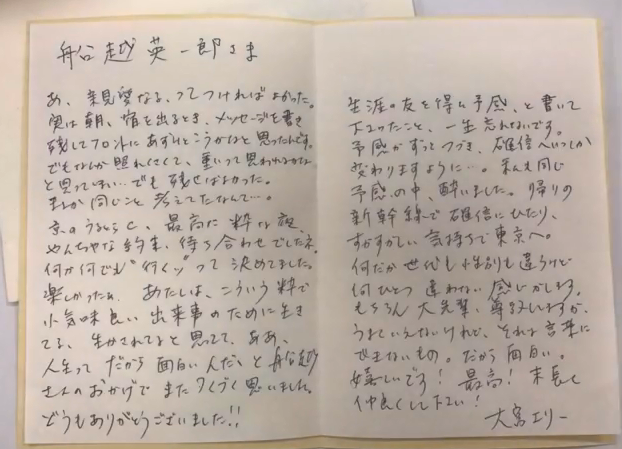 船越英一郎さま
あ、親愛なる、ってつければよかった。
実は朝、宿を出るとき、メッセージを書き
残してフロントにあずけとこうかなと思ったんです。
でもなんか照れくさくて、重いって思われるかな
と思ってしまい…でも残せばよかった。
まさか同じこと考えてたなんて…。
京のうしとらと、最高に粋な夜、
やんちゃな約束、待ち合わせでしたネ。
何が何でも“行くッ”って決めてました。
楽しかったぁ。あたしは、こういう粋で
小気味良い出来事のために生き
てる、生かされてると思ってて、ああ、
人生ってだから面白いんだいと船越
さんのおかげでまたつくづく思いました。
どうもありがとうございました!!
生涯の友を得た予感、と書いて
下さったこと、一生忘れないです。
予感がずっとつづき、確信へいつしか
変わりますように…。私も同じ
予感の中、酔いました。帰りの
新幹線で確信にひたり、
すがすがしい気持ちで東京へ。
何だか世代も性別も違うけど
何ひとつ違わない感じがします。
もちろん大先輩、尊敬しますが、
うまくいえないけれど、それは言葉に
できないもの。だから面白い。
嬉しいです!最高!末長く
仲良くして下さい!
大宮エリー